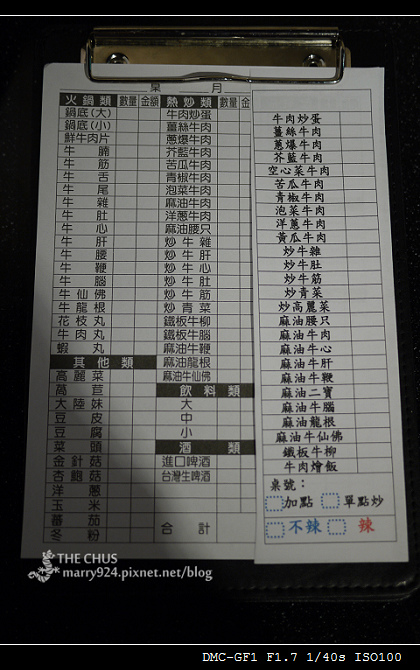 桌 月
火鍋類 數量 金額
鍋底(大)
鍋底(小)
鮮牛肉片
牛腩
牛筋
牛舌
牛尾
牛雜
牛肚
牛心
牛肝
牛腰
牛鞭
牛腦
牛仙佛
牛龍根
花枝丸
牛肉丸
蝦丸
其他類
高麗菜
萵苣
大陸妹
豆皮
豆腐
菜頭
金針菇
杏鮑菇
洋蔥
玉米
蕃茄
冬粉
熱炒類 數量 金
牛肉炒蛋
薑絲牛肉
蔥爆牛肉
芥藍牛肉
苦瓜牛肉
青椒牛肉
泡菜牛肉
麻油牛肉
洋蔥牛肉
麻油腰只
炒牛雜
炒牛肝
炒牛心
炒牛肚
炒牛筋
炒青菜
鐵板牛柳
鐵板牛腦
麻油牛鞭
麻油龍根
麻油牛仙佛
飲料類
大
中
小
酒類
進口啤酒
台灣生啤酒
合計
牛肉炒蛋
薑絲牛肉
蔥爆牛肉
芥藍牛肉
空心菜牛肉
苦瓜牛肉
青椒牛肉
泡菜牛肉
洋蔥牛肉
黃瓜牛肉
炒牛雜
炒牛肚
炒牛筋
炒青菜
炒高麗菜
麻油腰只
麻油牛肉
麻油牛心
麻油牛肝
麻油牛鞭
麻油二寶
麻油牛腦
麻油龍根
麻油牛仙佛
鐵板牛柳
牛肉燴飯
桌號：
加點 單點炒
不辣 辣
THE CHUS
marry924.pixnet.net/blog
DMC-GF1 F1.7 1/40s ISO100